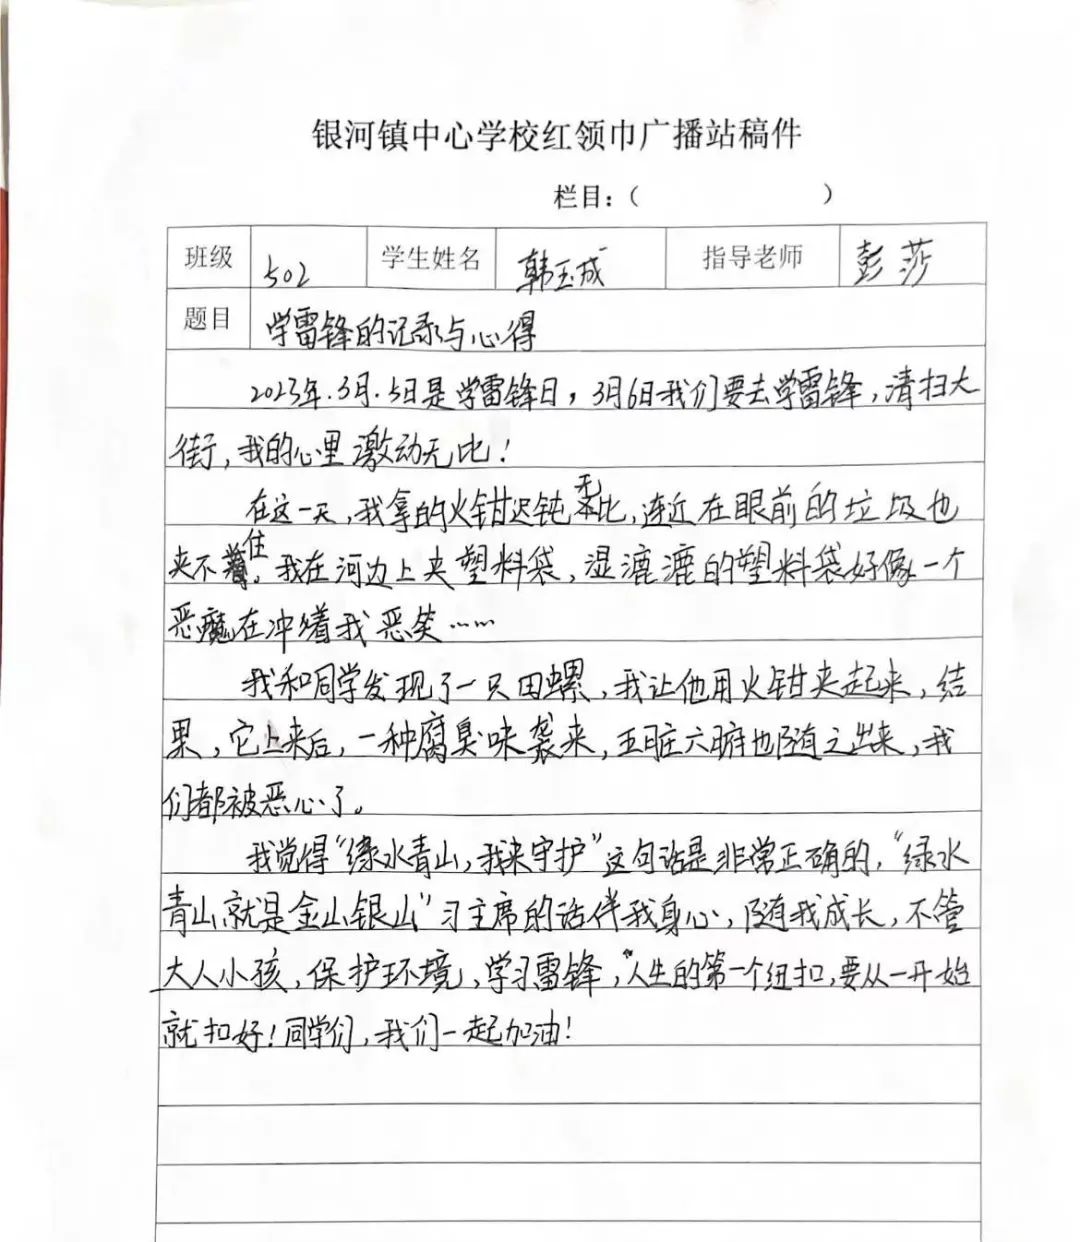 银河镇中心学校红领巾广播站稿件
栏目:(　　　　　　　)
班级 502 学生姓名 韩玉成 指导老师 彭莎
题目 学雷锋的记录与心得
2023年.3月.5日是学雷锋日，3月6日我们要去学雷锋，清扫大
街，我的心里激动无比！
在这一天，我拿的火钳迟钝无比，连近在眼前的垃圾也
夹不住。我在河边上夹塑料袋，湿漉漉的塑料袋好像一个
恶魔在冲着我恶笑……
我和同学发现了一只田螺，我让他用火钳夹起来，结
果，它上来后，一种腐臭味袭来，五脏六腑也随之出来，我
们都被恶心了。
我觉得“绿水青山，我来守护”这句话是非常正确的，“绿水
青山就是金山银山”习主席的话伴我身心，随我成长，不管
大人小孩，保护环境，学习雷锋，“人生的第一个纽扣，要从一开始
就扣好！同学们，我们一起加油！